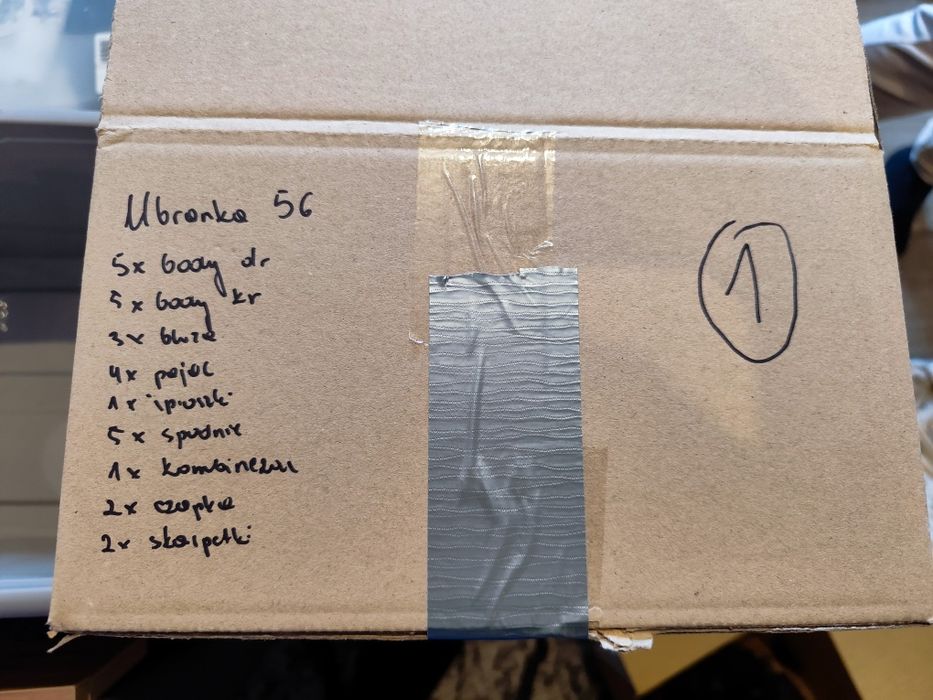 Ubranka 56
5x body dr
5x body kr
3x bluza
4x pajac
1x śpioszki
5x spodnie
1x kombinezon
2x czapka
2x skarpetki
1